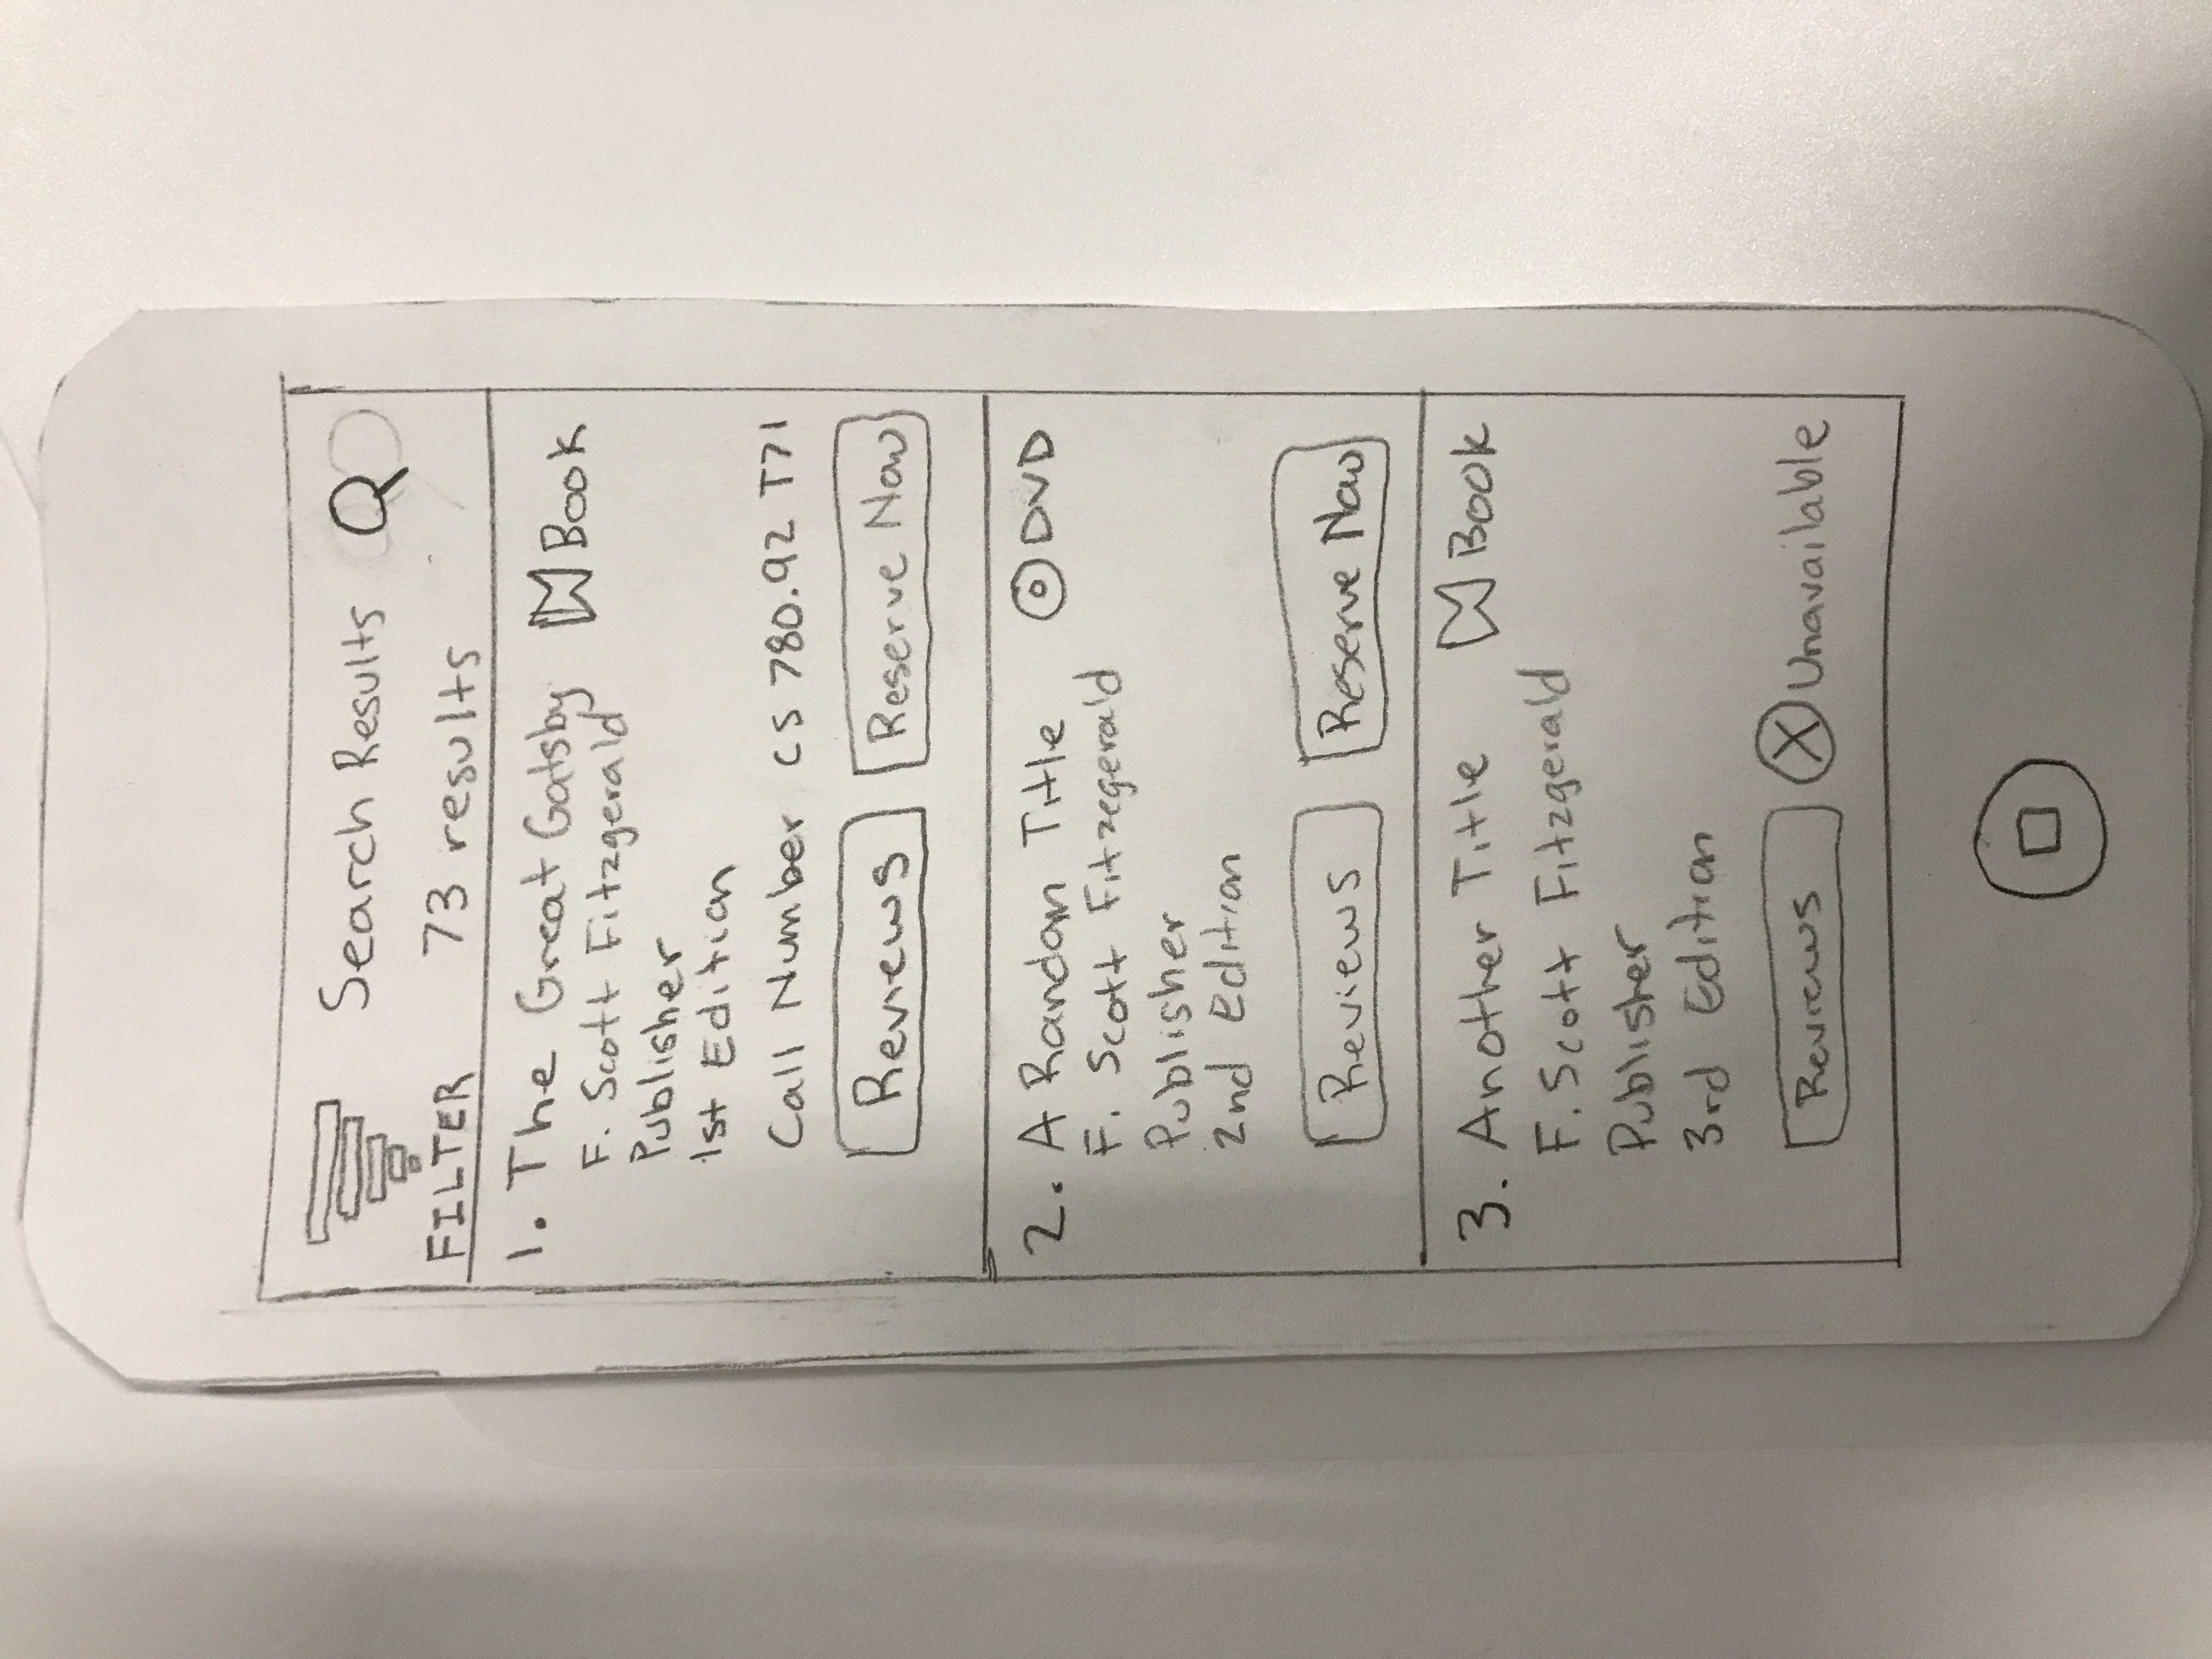 Search Results
FILTER 73 results
1. The Great Gatsby Book
F. Scott Fitzgerald
Publisher
1st Edition
Call Number CS 780.92 T71
Reviews Reserve Now
2. A Random Title DVD
F. Scott Fitzegerald
Publisher
2nd Edition
Reviews Reserve Now
3. Another Title Book
F. Scott Fitzgerald
Publisher
3rd Edition
Reviews X Unavailable